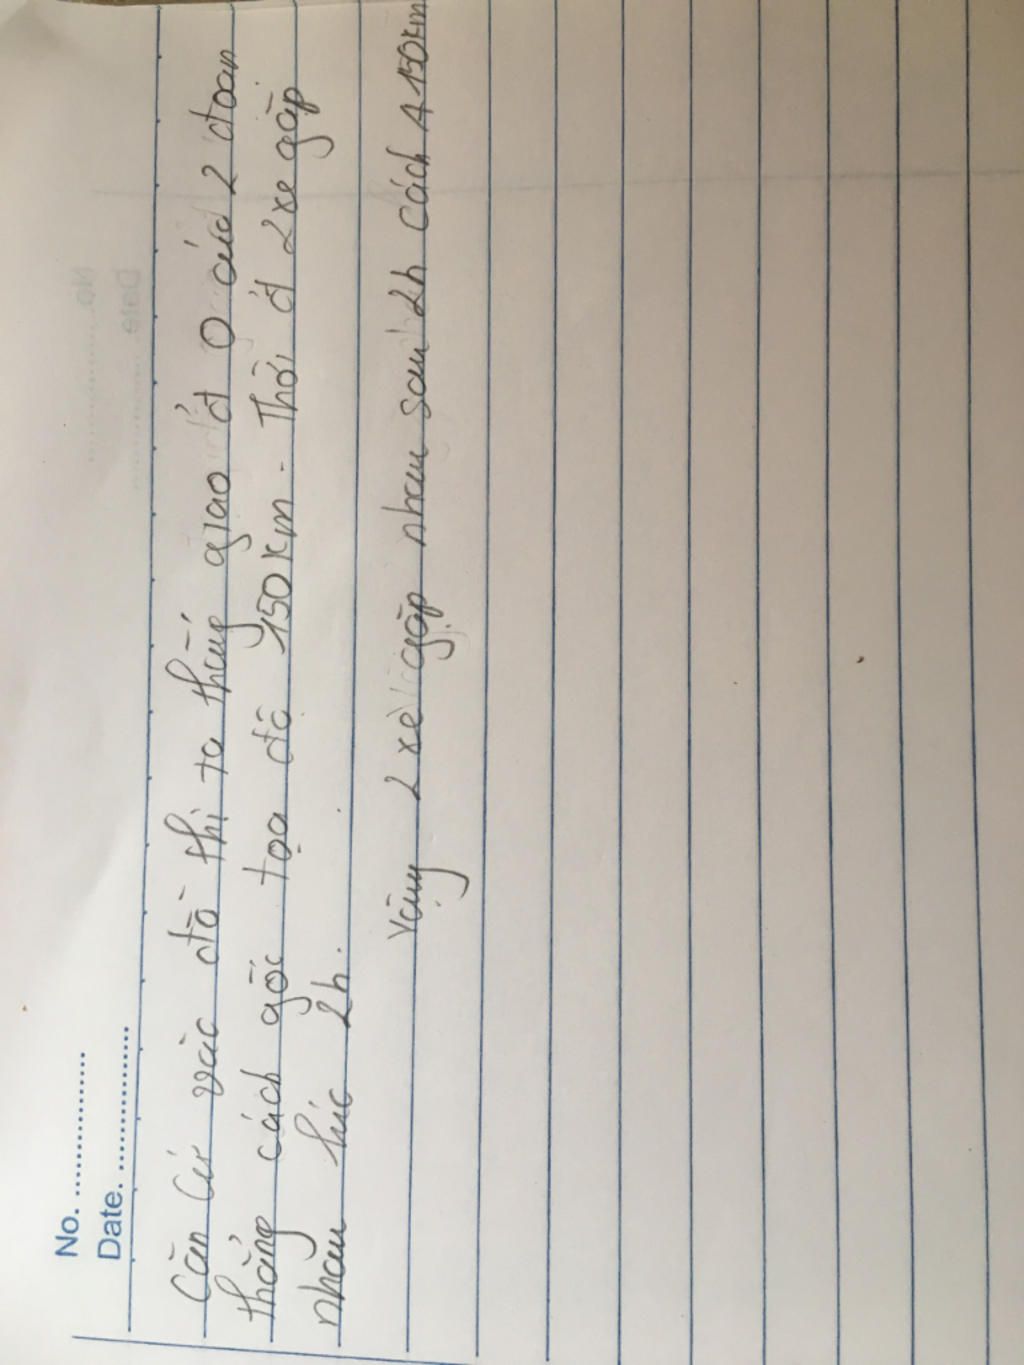 No. ..................
Date. ..................
Căn cứ vào đồ thị ta thấy giao ở 0 của 2 đoạn
thẳng cách gốc tọa độ 150km. Thời ở 2 xe gặp
nhau lúc 2h.
Vậy 2 xe gặp nhau sau 2h cách A 150km